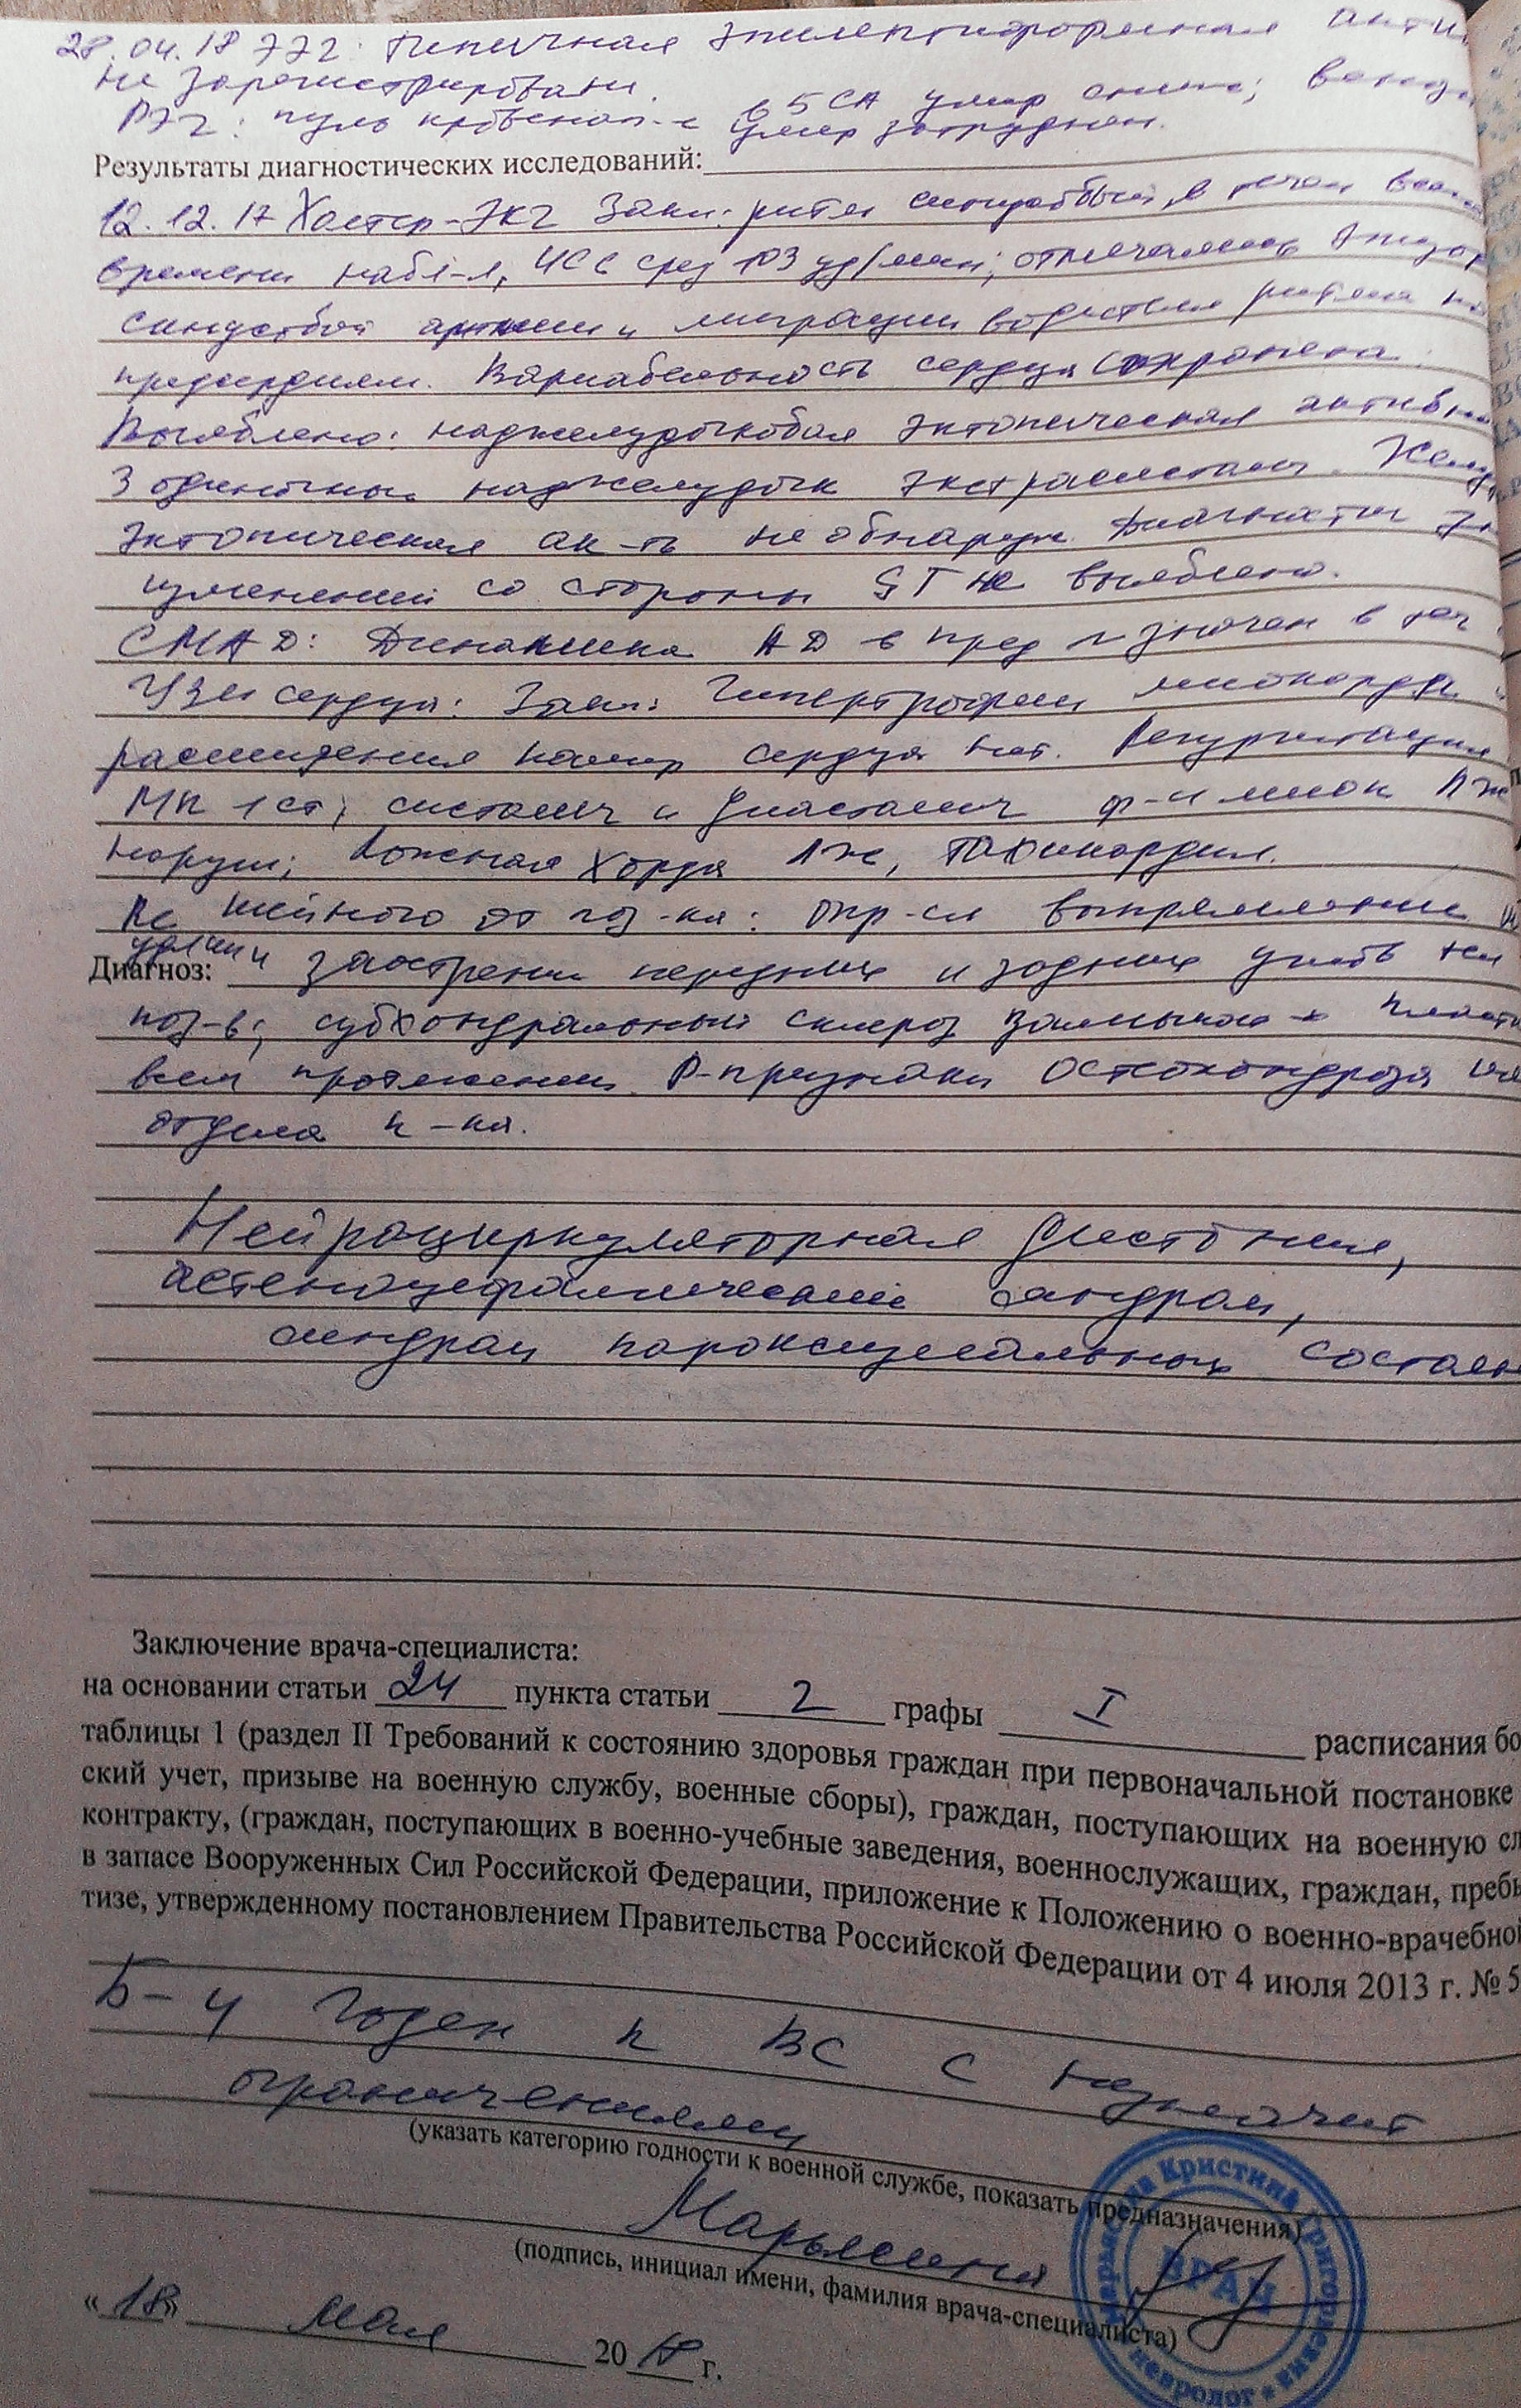 28.04.18 ЭЭГ: Типичная эпилептиформная акти
не зарегистрирована.
РЭГ: пульс кровенап-е в БСА умер сниж; веноз
умер затруднен.
Результаты диагностических исследований:
12.12.17 Холтер-ЭКГ Закл: ритм синусовый, в течен всего
времени набл-я, ЧСС сред 103 уд/мин; отмечались эпизод
синусовой аритмии и миграции водителя ритма по
предсердиям. Вариабельность сердца сохранена.
Выявлено: наджелудочковая эктопическая активн
3 одиночных наджелудочк экстрасистол. Желуд
эктопическая ак-ть не обнаруж. Диагностич зн
изменений со стороны ST не выявлено.
СМАД: Динамика АД в пред N значен в теч
УЗИ сердца: Закл: Гипертрофии миокарда и
расширения камер сердца нет. Регургитация
МК 1 ст; систолич и диастолич ф-и миок ЛЖ
наруш; ложная хорда ЛЖ, тахикардия.
Rg шейного от поз-ка: опр-ся выпрямление
удлин и
Диагноз: заострени передних и задних углов тел
поз-в; субхондральный склероз замыкат-х пласти
всем протяжении. R-признаки остеохондроза ше
отдела п-ка.
Нейроциркуляторная дистония,
астеноцефалгический синдром,
синдром пароксизмальных состоян
Заключение врача-специалиста:
на основании статьи 24 пункта статьи 2 графы I расписания бо
таблицы 1 (раздел II Требований к состоянию здоровья граждан при первоначальной постановке
ский учет, призыве на военную службу, военные сборы), граждан, поступающих на военную сл
контракту, (граждан, поступающих в военно-учебные заведения, военнослужащих, граждан, пребы
в запасе Вооруженных Сил Российской Федерации, приложение к Положению о военно-врачебной
тизе, утвержденному постановлением Правительства Российской Федерации от 4 июля 2013 г. № 5
Б-4 Годен к ВС с незначит
ограничениями
(указать категорию годности к военной службе, показать предназначения)
Марьясина
(подпись, инициал имени, фамилия врача-специалиста)
«18» мая 2018 г.
Марьясина Кристина Григорьевна
ВРАЧ
невролог